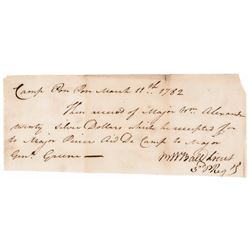 Camp Pon Pon March 11th 1782
Then receved of Major Wm Alexander
twenty Silver Dollars which he receipted for
to Major Peirce Aid De Camp to Major
Genl. Greene —
Lieut
3d P Regt